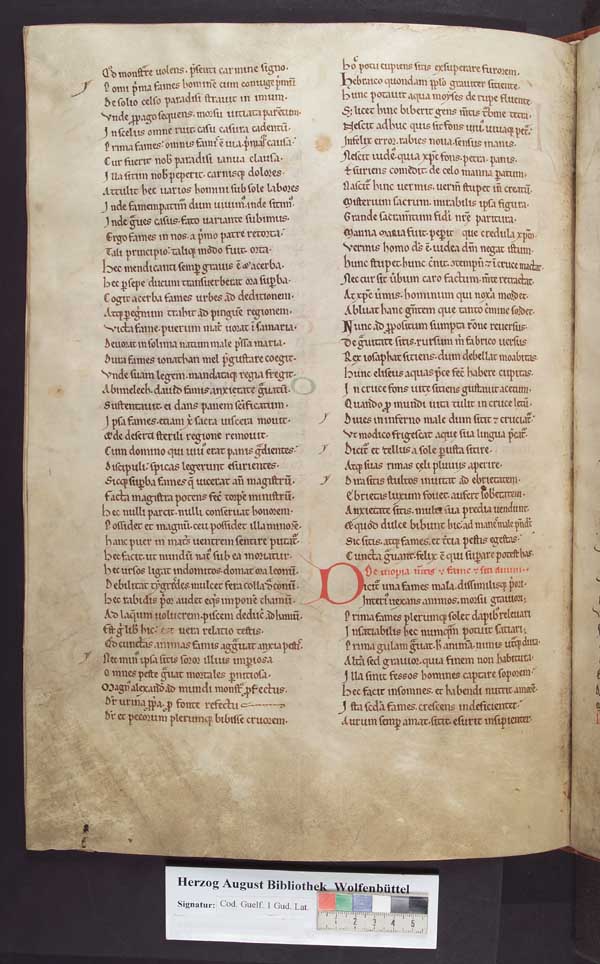 Qd monstre uolens, psenti carmine signo.
Pomi pma fames hominem cum coniuge pmit
De solio celso paradisi strauit in imum.
Vnde ppago sequens, morsu uitiata parentum.
In scelus omne ruit casu casura cadentu.
Prima fames: omnis fames e uia, pma causa.
Cur fuerit nob paradisi ianua clausa.
Illa sitim nob peperit, carnisq dolores.
Attulit hec uarios homini sub sole labores
Inde famem patimur dum uiuim inde sitim.
Inde gues casus, fato uariante subimus.
Ergo fames in nos, a pmo patre retorta.
Tali principio, taliq modo fuit orta.
Hec mendicanti semp grauis e & acerba.
Hec psepe ducum transuerberat ora supba.
Cogit acerba fames urbes ad deditionem.
Atq pegrinum trahit ad pingue regionem.
Victa fame, puerum mat uorat i samaria.
Deuorat in solima natum male pssa maria.
Dira fames ionathan mel pgustare coegit.
Vnde suam legem, mandataq regia fregit.
Abimelech, dauid famis anxietate guatu.
Sustentauit, ei dans panem scificatum.
Ipsa fames, etiam x sacra uiscera mouit.
& de deserti sterili regione remouit.
Cum domino qui uiu erat panis gdientes.
Discipuli, spicas legerunt esurientes.
Sicq supba fames q uicerat an magistru.
Facta magistra potens fec torpe ministru.
Hec nulli parcit, nulli conseruat honorem.
Possidet et magnu, ceu possidet illa minore.
Hanc puer in matis uentrem sentire putat.
Hec facit ut nundu nat sub ea moriatur.
Hec ursos ligat indomitos, domat ora leonu.
Debilitat tigrides mulcet fera colla draconu.
Hec rabidis por audet eqis imponere chamu.
Ad laqum uolucrem, piscem deducit ad hamu.
Est g lib hic: et uera relatio testis.
Qd cunctas animas famis aggrauat anxia pestis.
Nec min ipsa sitis soror illius impiosa
Omnes peste guat mortales pnitiosa.
Magn alexand ad mundi monstr pfectus.
Dr urina ppa, p fonte refectus
Dr et pecorum plerumq bibisse cruorem.
Ho potu cupiens sitis exsuperare furorem.
Hebraico quondam pplo grauiter sitiente.
Hunc potauit aqua moyses de rupe fluente.
Si licet hinc biberit gens
Nescit adhuc quis sit fons
Infelix error, rabies noua, sensus inanis.
Nescit iude quia xpe fons, petra, panis.
Esuriens comedit de celo manna paratum.
Nascit hinc uermis, uerm stupet in creatu.
Misterium sacrum, mirabilis ipsa figura.
Grande sacramtum fidi nre paritura.
Manna maria fuit, peperit que credula xpm.
Vermis homo ds e, iudea dm negat istum.
Hunc stupet, hunc
Nec cur sit ubum caro factum,
At xpe uermis, hominum qui noxia mordet.
Abluat hanc gentem que tanto cmine sordet.
Nunc ad ppositum sumpta rone reuersus.
De guitate sitis, rursum in fabrico uersus
Rex iosaphat sitiens, dum debellat moabitas.
Hunc eliseus aquas pce fec habere cupitas.
In cruce fons uite sitiens gustauit acetum.
Quando p mundi uita tulit in cruce letu.
Diues in inferno male dum sitit & cruciat.
Vt modico frigescat aque sua lingua pcat.
Dicit et tellus a sole pusta sitire.
Atq suas rimas celi pluuiis aperire.
Dira sitis stultos inuitat ad ebrietatem.
Ebrietas luxum fouet, aufert sobrietatem.
Anxietate sitis, multi sua predia uendunt.
& quod dulce bibunt hic, ad mane male pendt.
Sic sitis, atq fames, et tcia pestis egestas.
Cuncta guant, felix e qui supare potest has.
De inopia mtis & fame & siti animi.
Dicit una fames mala, dissimilisq pori.
Interi uexans animos, morsu grauiori.
Prima fames plerumq solet dapib releuari
Insatiabilis hec numqm potuit satiari.
Prima gulam guat, h animam, nimis
Altra sed grauior, quia finem non habitura.
Illa sinit fessos homines captare soporem.
Hec facit insomnes, et habendi nutrit amore.
Ista scda fames, crescens indeficienter.
Aurum semp amat, sitit, esurit insipienter.
Herzog August Bibliothek Wolfenbüttel
Signatur: Cod. Guelf. 1 Gud. Lat.
1 2 3 4 5